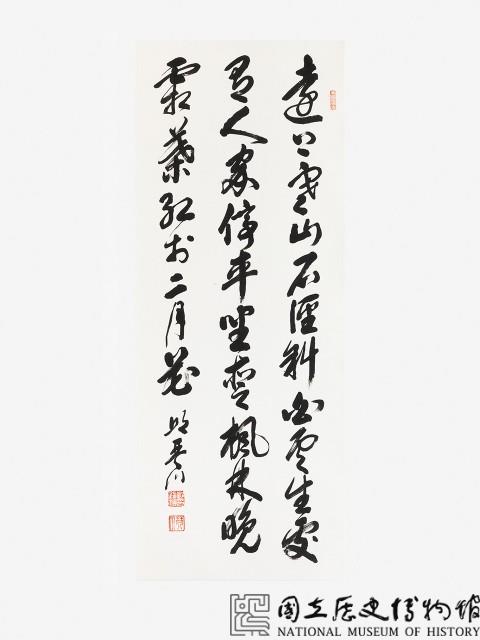 遠上寒山石徑斜白雲生處
有人家停車坐愛楓林晚
霜葉紅於二月花
國立歷史博物館
NATIONAL MUSEUM OF HISTORY